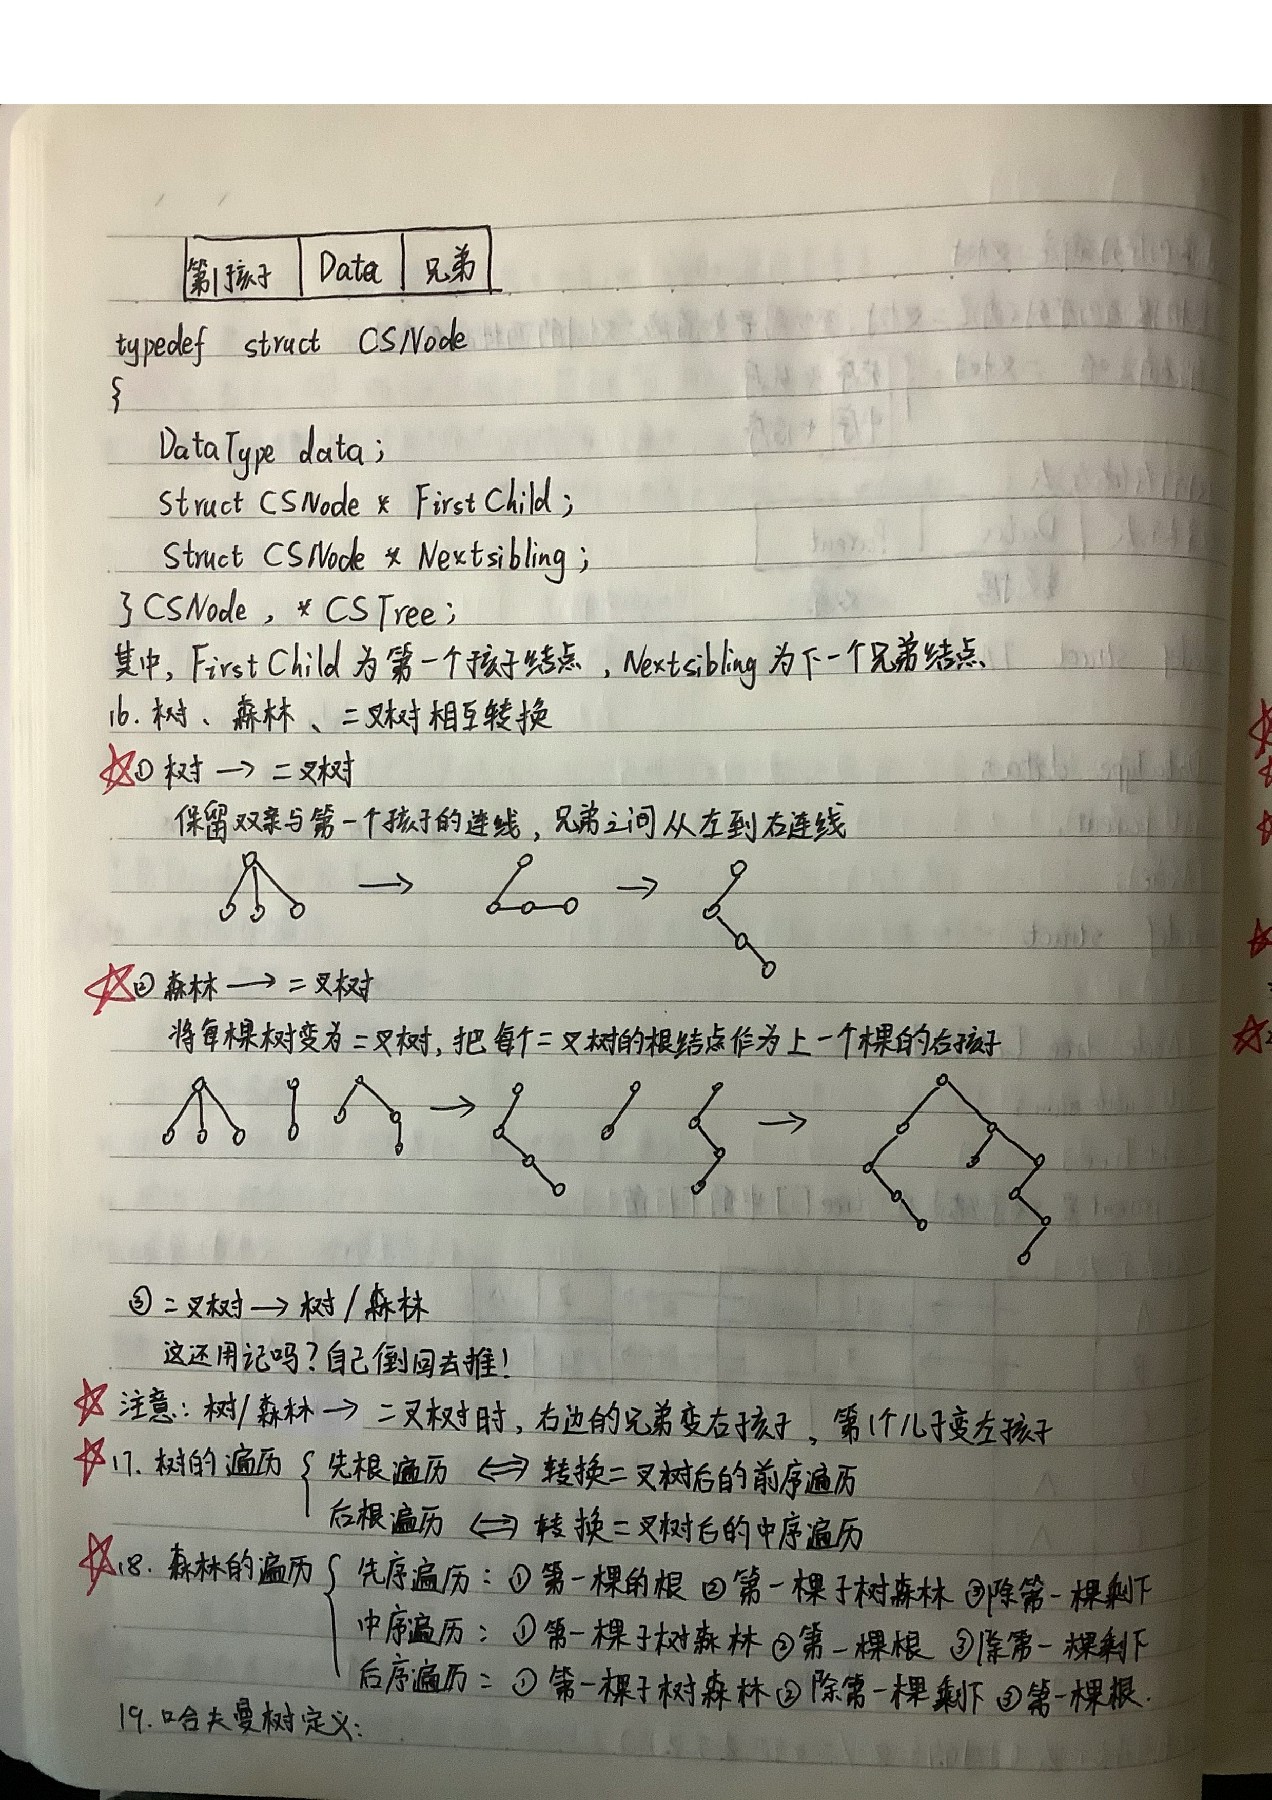 第1孩子 Data 兄弟
typedef struct CSNode
{
DataType data;
Struct CSNode * FirstChild;
Struct CSNode * Nextsibling;
} CSNode, * CSTree;
其中, FirstChild 为第一个孩子结点, Nextsibling 为下一个兄弟结点、
16. 树、森林、二叉树相互转换
① 树 → 二叉树
保留双亲与第一个孩子的连线, 兄弟之间从左到右连线
② 森林 → 二叉树
将每棵树变为二叉树, 把每个二叉树的根结点作为上一个棵的右孩子
③ 二叉树 → 树/森林
这还用记吗? 自己倒回去推!
注意: 树/森林 → 二叉树时, 右边的兄弟变右孩子, 第1个儿子变左孩子
17. 树的遍历 { 先根遍历 ⇔ 转换二叉树后的前序遍历
后根遍历 ⇔ 转换二叉树后的中序遍历
18. 森林的遍历 { 先序遍历: ① 第一棵的根 ② 第一棵子树森林 ③ 除第一棵剩下
中序遍历: ① 第一棵子树森林 ② 第一棵根 ③ 除第一棵剩下
后序遍历: ① 第一棵子树森林 ② 除第一棵剩下 ③ 第一棵根.
19. 哈夫曼树定义: